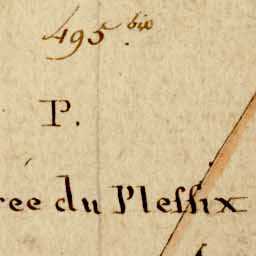 495 bis
P.
rée du Plessix